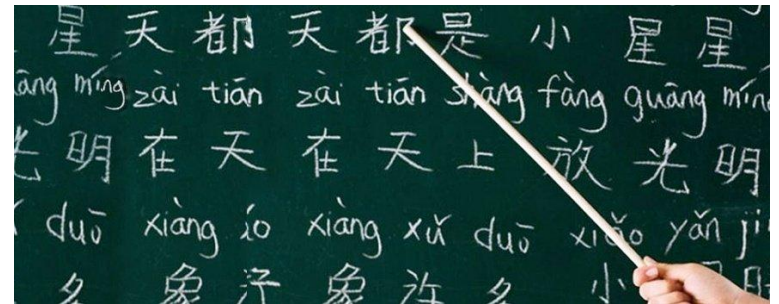 星 天 都 天 都 是 小 星 星
āng míng zài tiān zài tiān shàng fàng guāng mín
光 明 在 天 在 天 上 放 光 明
duō xiàng xiàng xǔ duō xiǎo yǎn ji
多 象 象 许 多 小